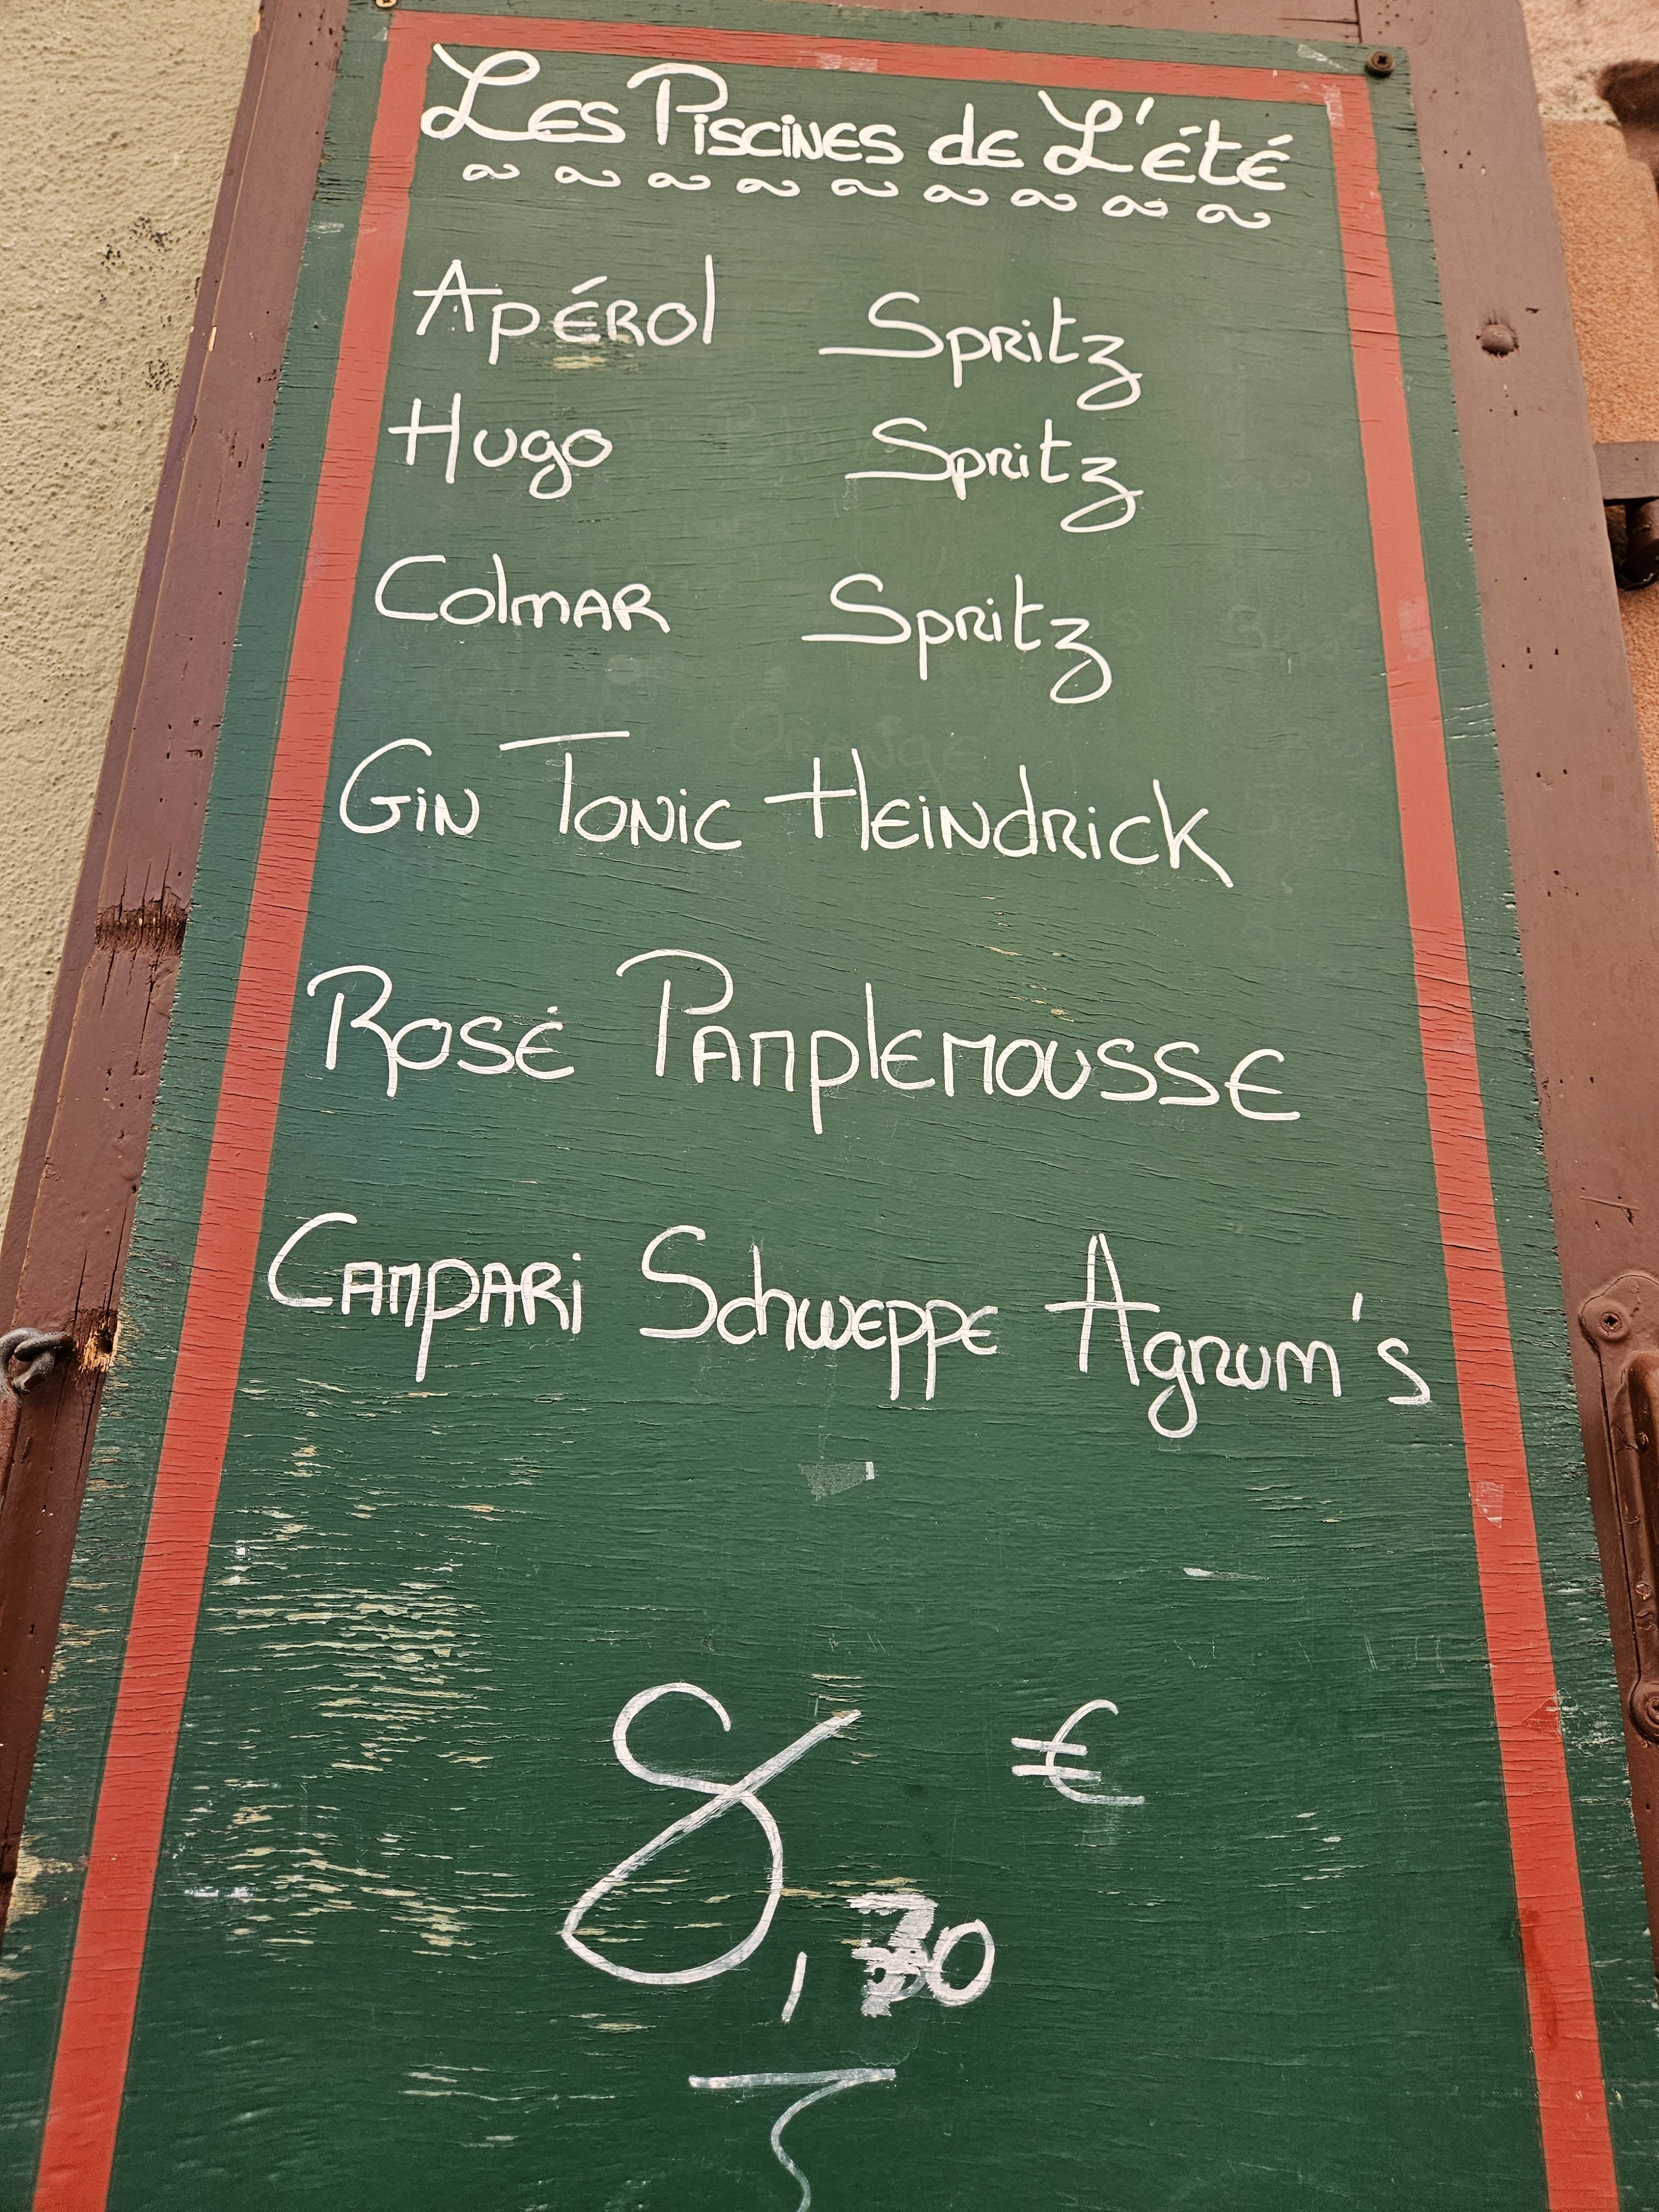 Les Piscines de L'été
Apérol Spritz
Hugo Spritz
Colmar Spritz
Gin Tonic Heindrick
Rosé Pamplemousse
Campari Schweppe Agrum's
€